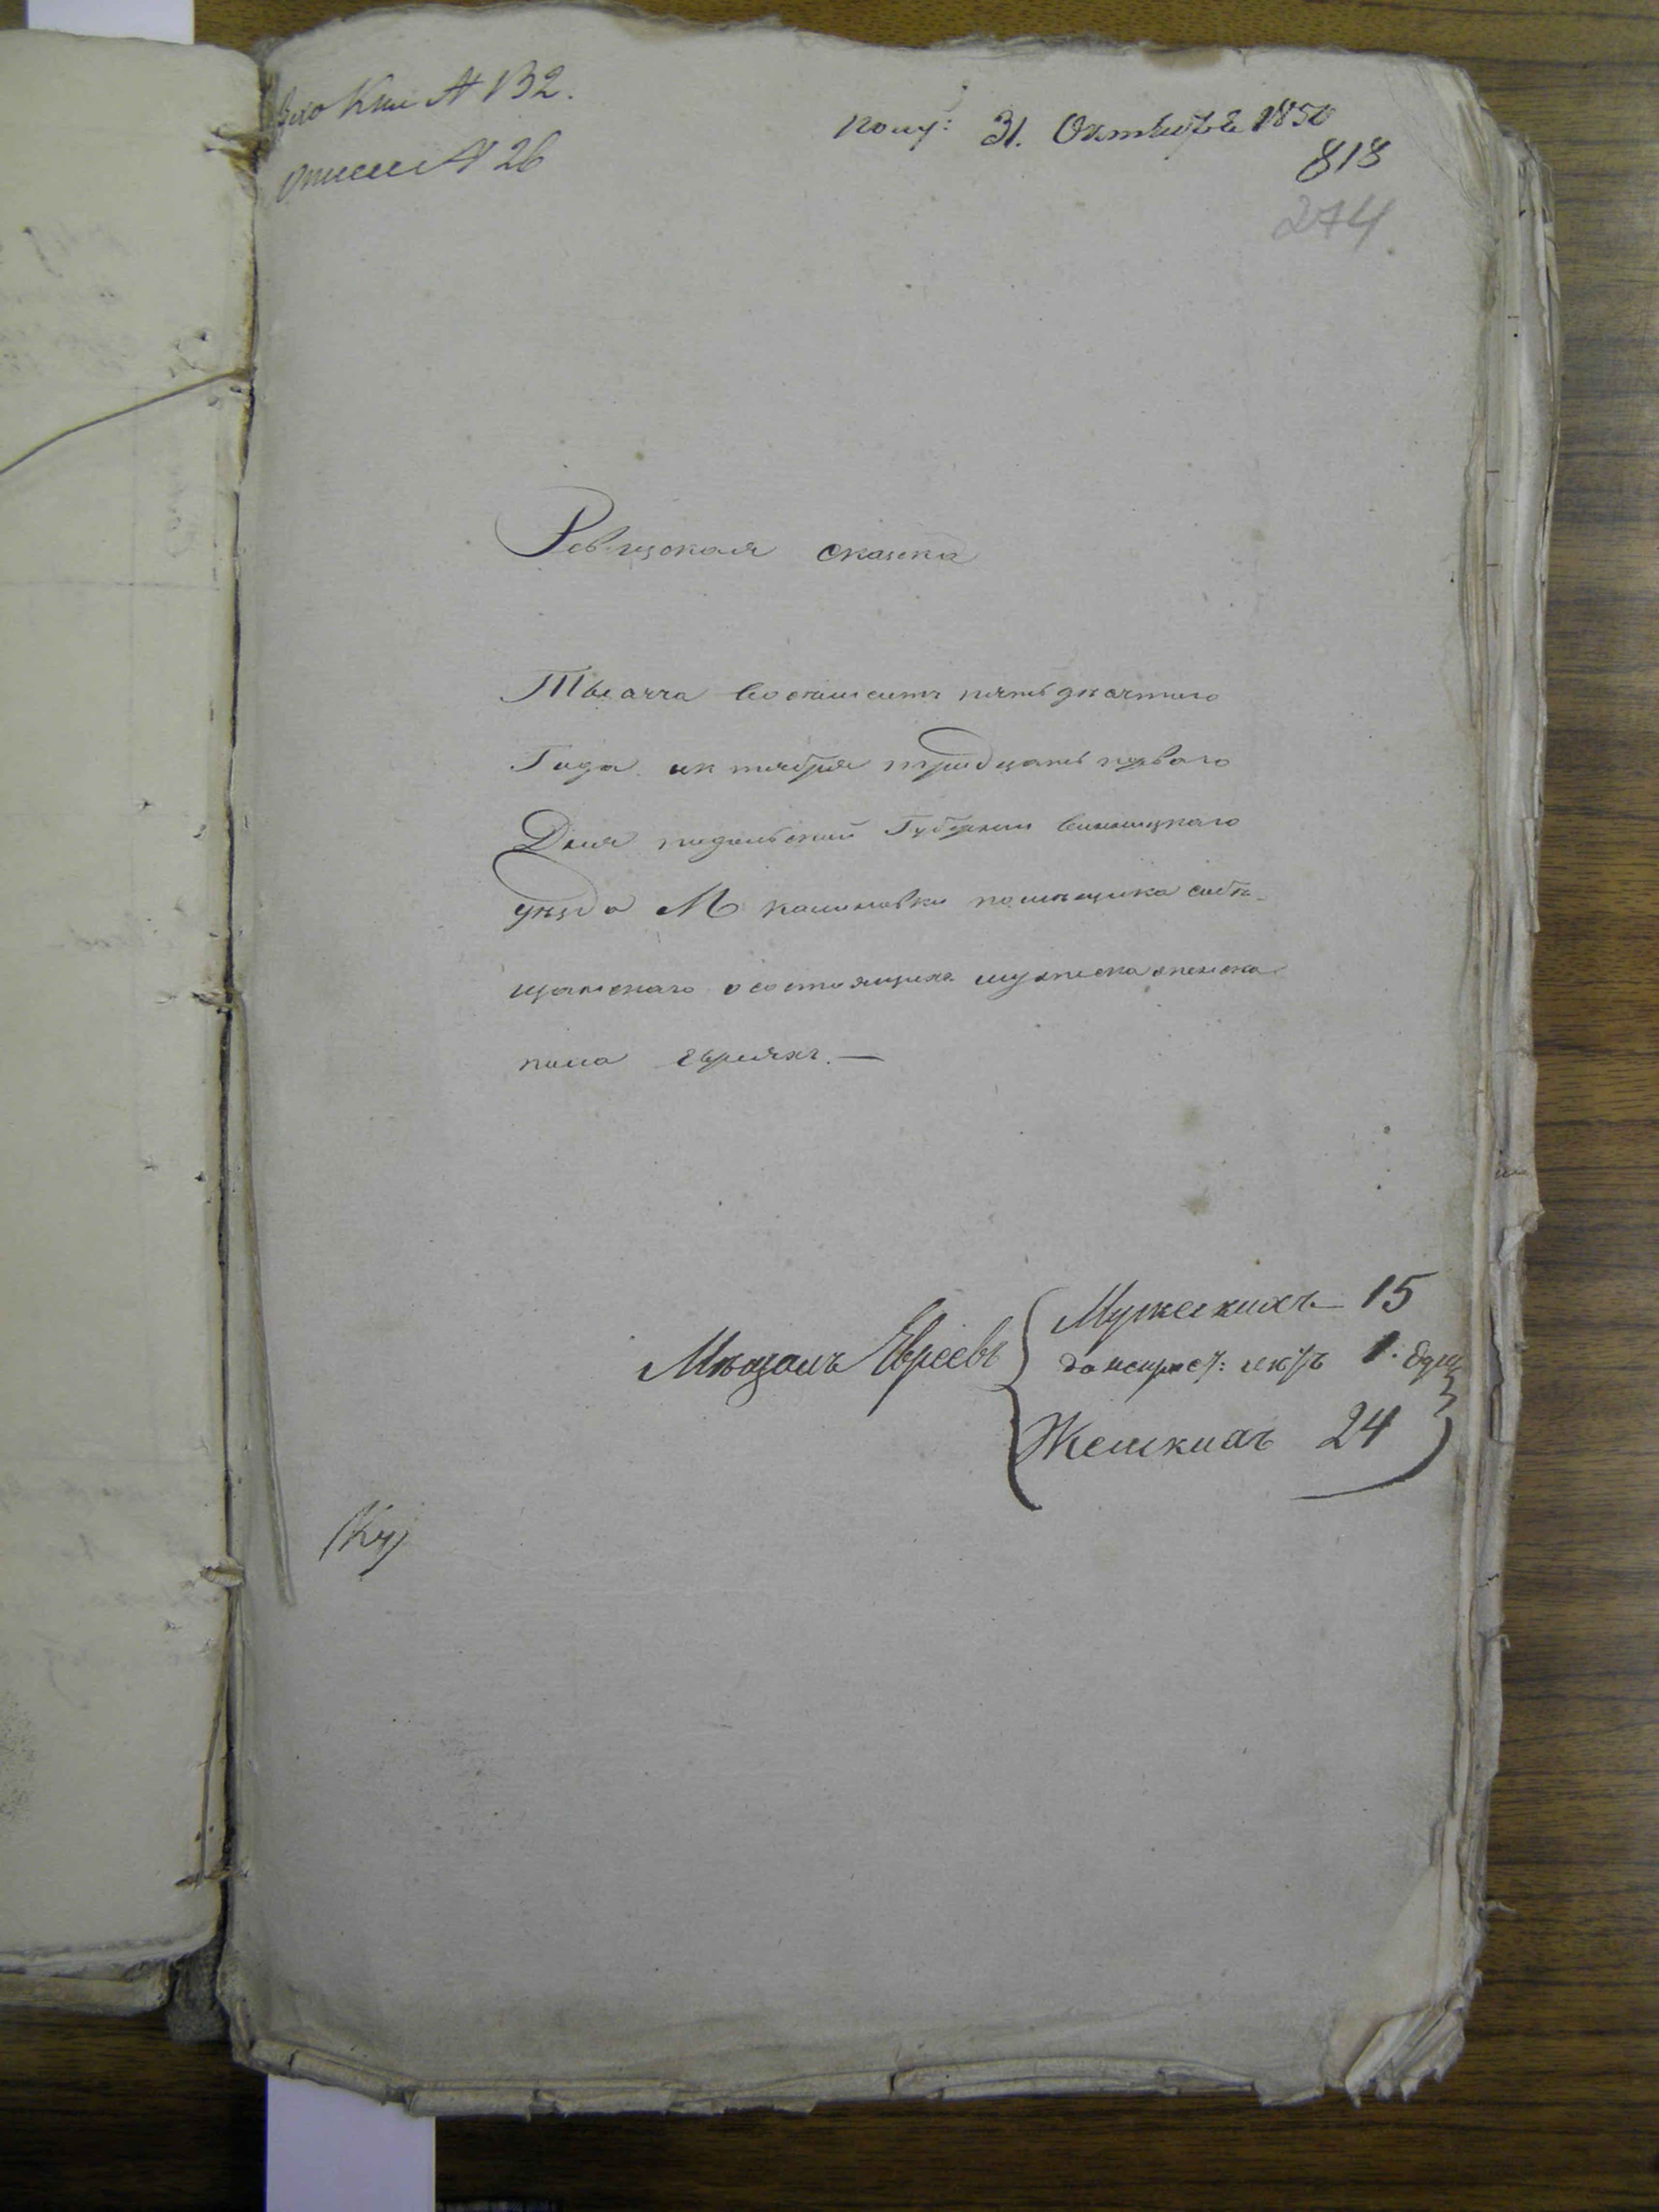 Кни № 132.
Описи № 26
Получ: 31. Октября 1850
818
274
Ревизская сказка
Тысяча восимсотъ пятьдисятого
Года октября тридцать первого
Дня подольской Губернии винницкаго
уѣзда М калиновки помѣщика
о состоящихъ мужеска женска
пола евреяхъ. —
Мѣщанъ Евреевъ
Мужескихъ — 15
1.
Женскихъ 24